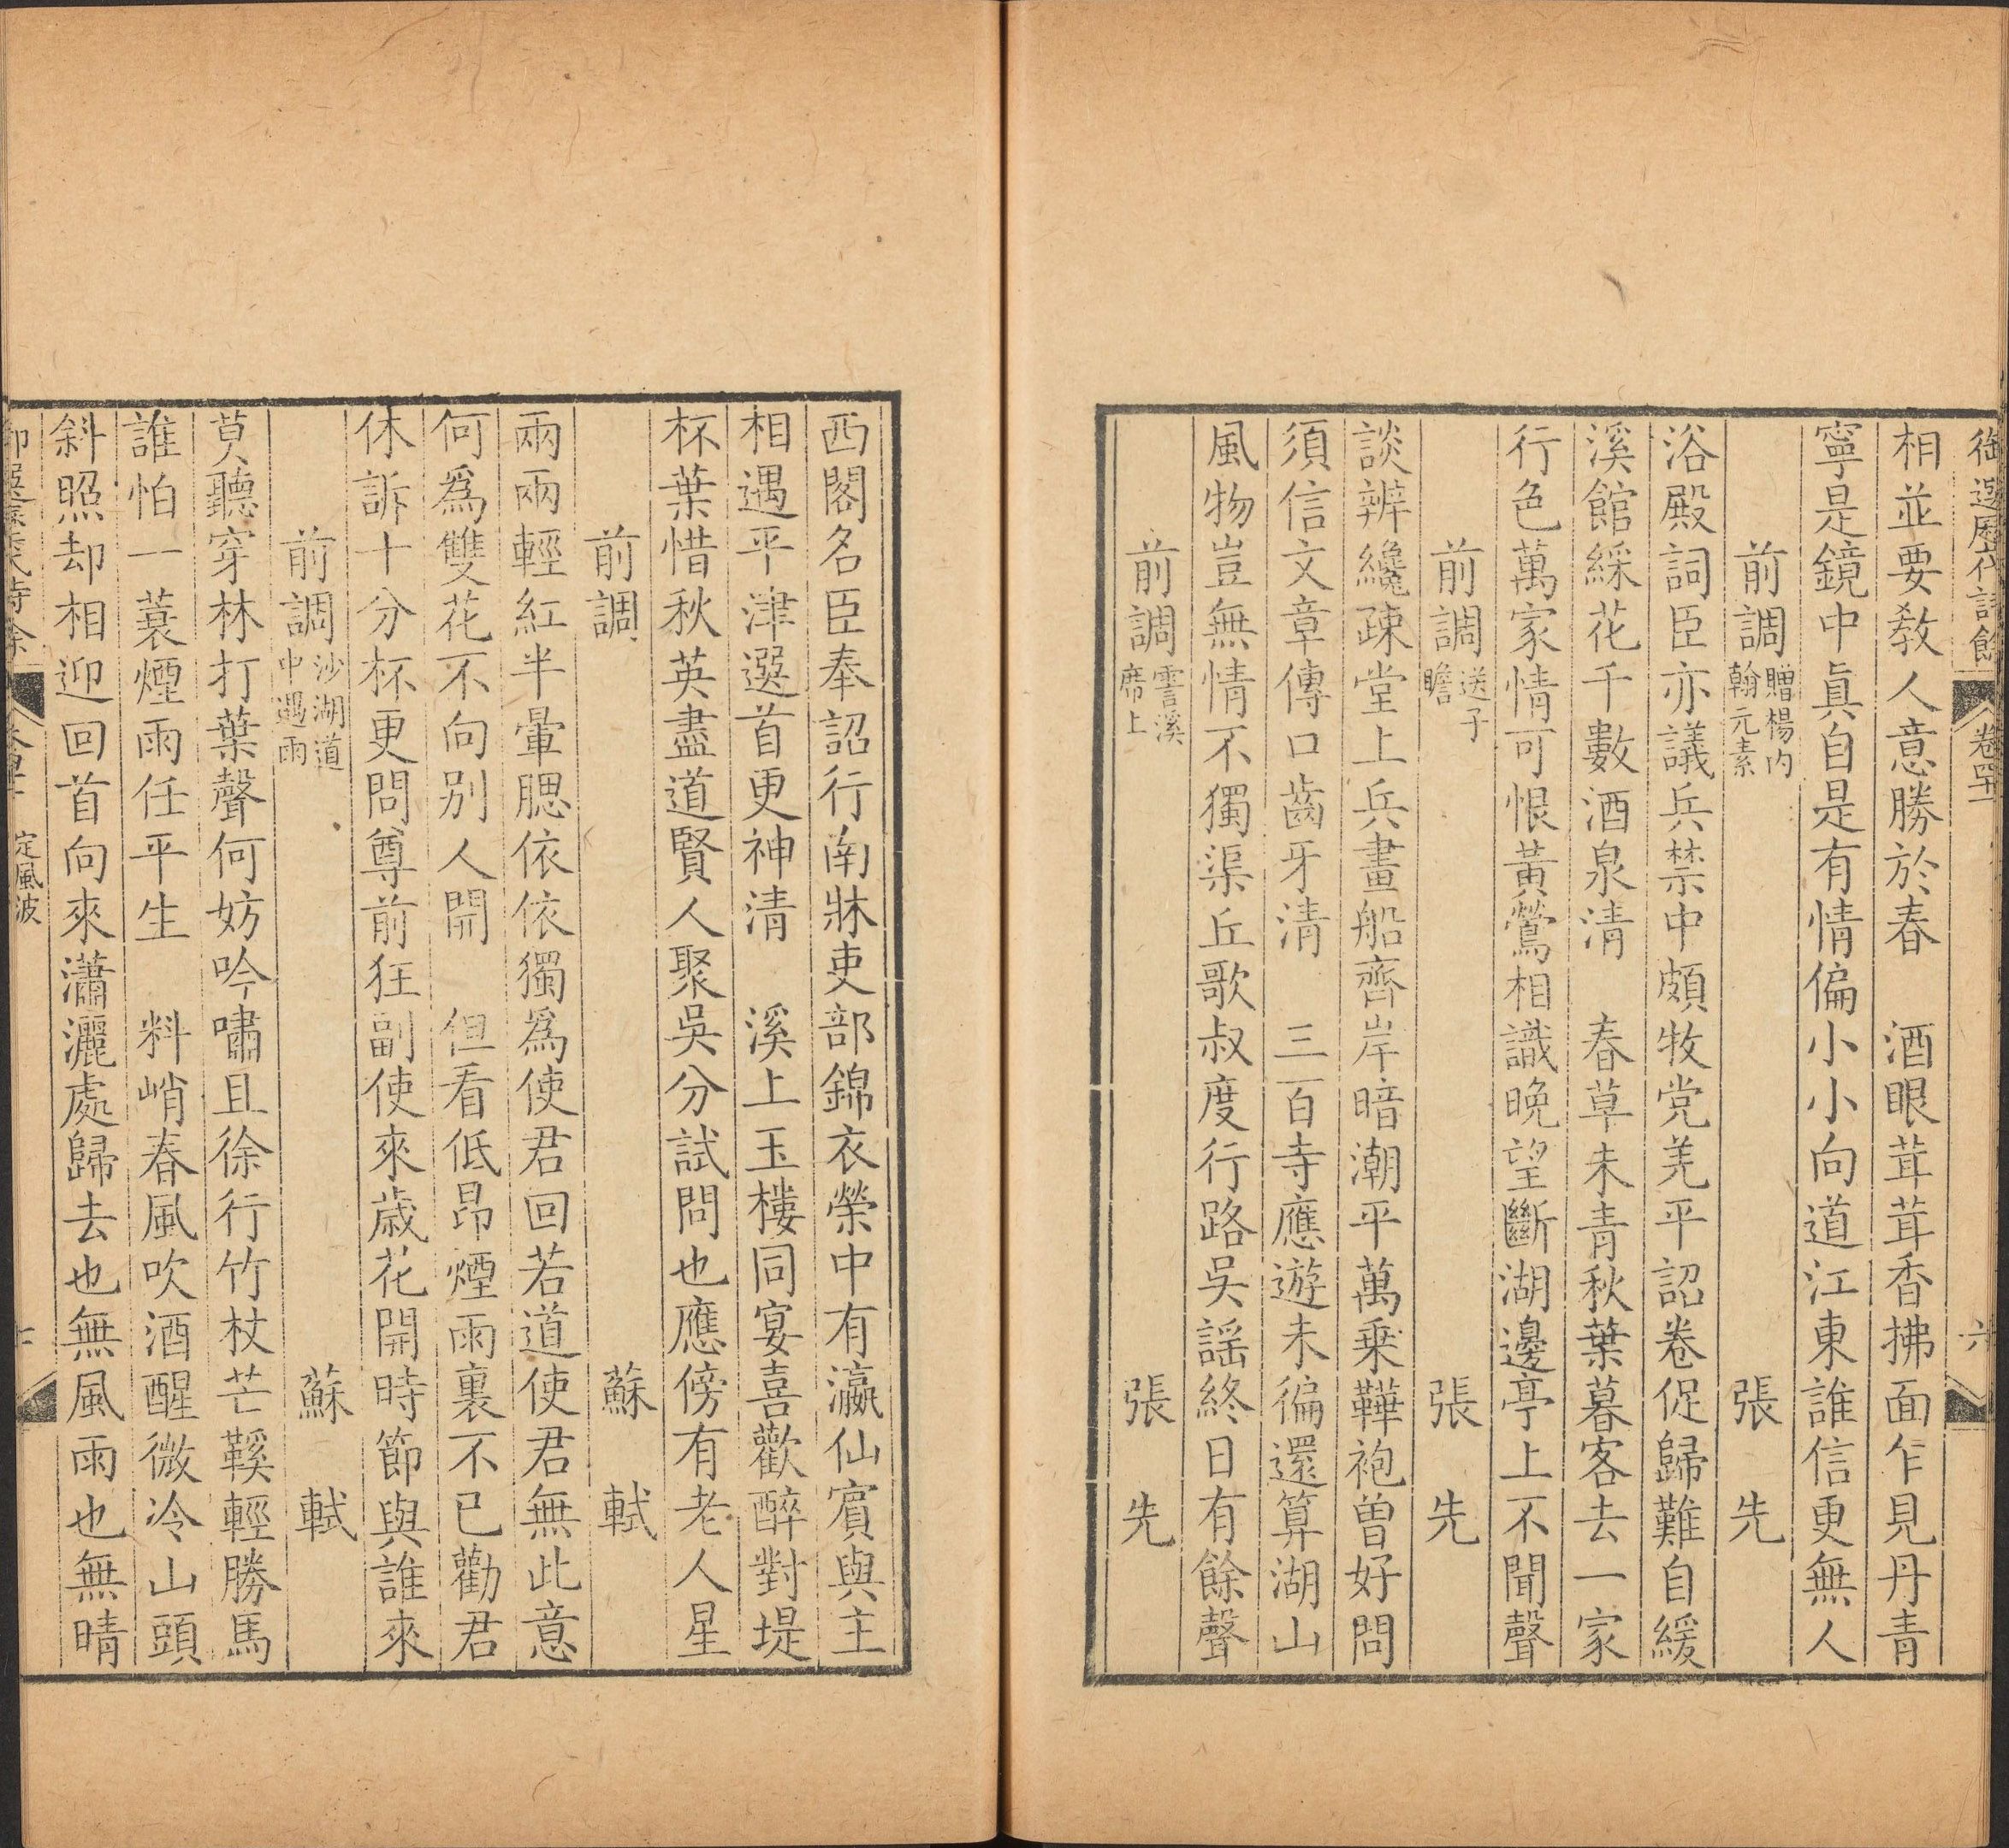 御選歷代詩餘 卷四十一 六
相並要教人意勝於春 酒眼茸茸香拂面乍見丹青
寧是鏡中眞自是有情偏小小向道江東誰信更無人
前調 贈楊內翰元素 張先
浴殿詞臣亦議兵禁中頗牧党羌平詔卷促歸難自緩
溪館綵花千數酒泉清 春草未青秋葉暮客去一家
行色萬家情可恨黃鶯相識晚望斷湖邊亭上不聞聲
前調 送子瞻 張先
談辨纔疎堂上兵畫船齊岸暗潮平萬乗鞾袍曽好問
須信文章傳口齒牙清 三百寺應遊未徧還算湖山
風物豈無情不獨渠丘歌叔度行路吳謡終日有餘聲
前調 霅溪席上 張先
西閣名臣奉詔行南牀吏部錦衣榮中有瀛仙賓與主
相遇平津選首更神清 溪上玉樓同宴喜歡醉對堤
杯葉惜秋英盡道賢人聚吳分試問也應傍有老人星
前調 蘇軾
兩兩輕紅半暈腮依依獨爲使君回若道使君無此意
何爲雙花不向别人開 但看低昂煙雨裏不已勸君
休訴十分杯更問尊前狂副使來歲花開時節與誰來
前調 沙湖道中遇雨 蘇軾
莫聽穿林打葉聲何妨吟嘯且徐行竹杖芒鞵輕勝馬
誰怕一蓑煙雨任平生 料峭春風吹酒醒微冷山頭
斜照却相迎回首向來瀟灑處歸去也無風雨也無晴
定風波 七